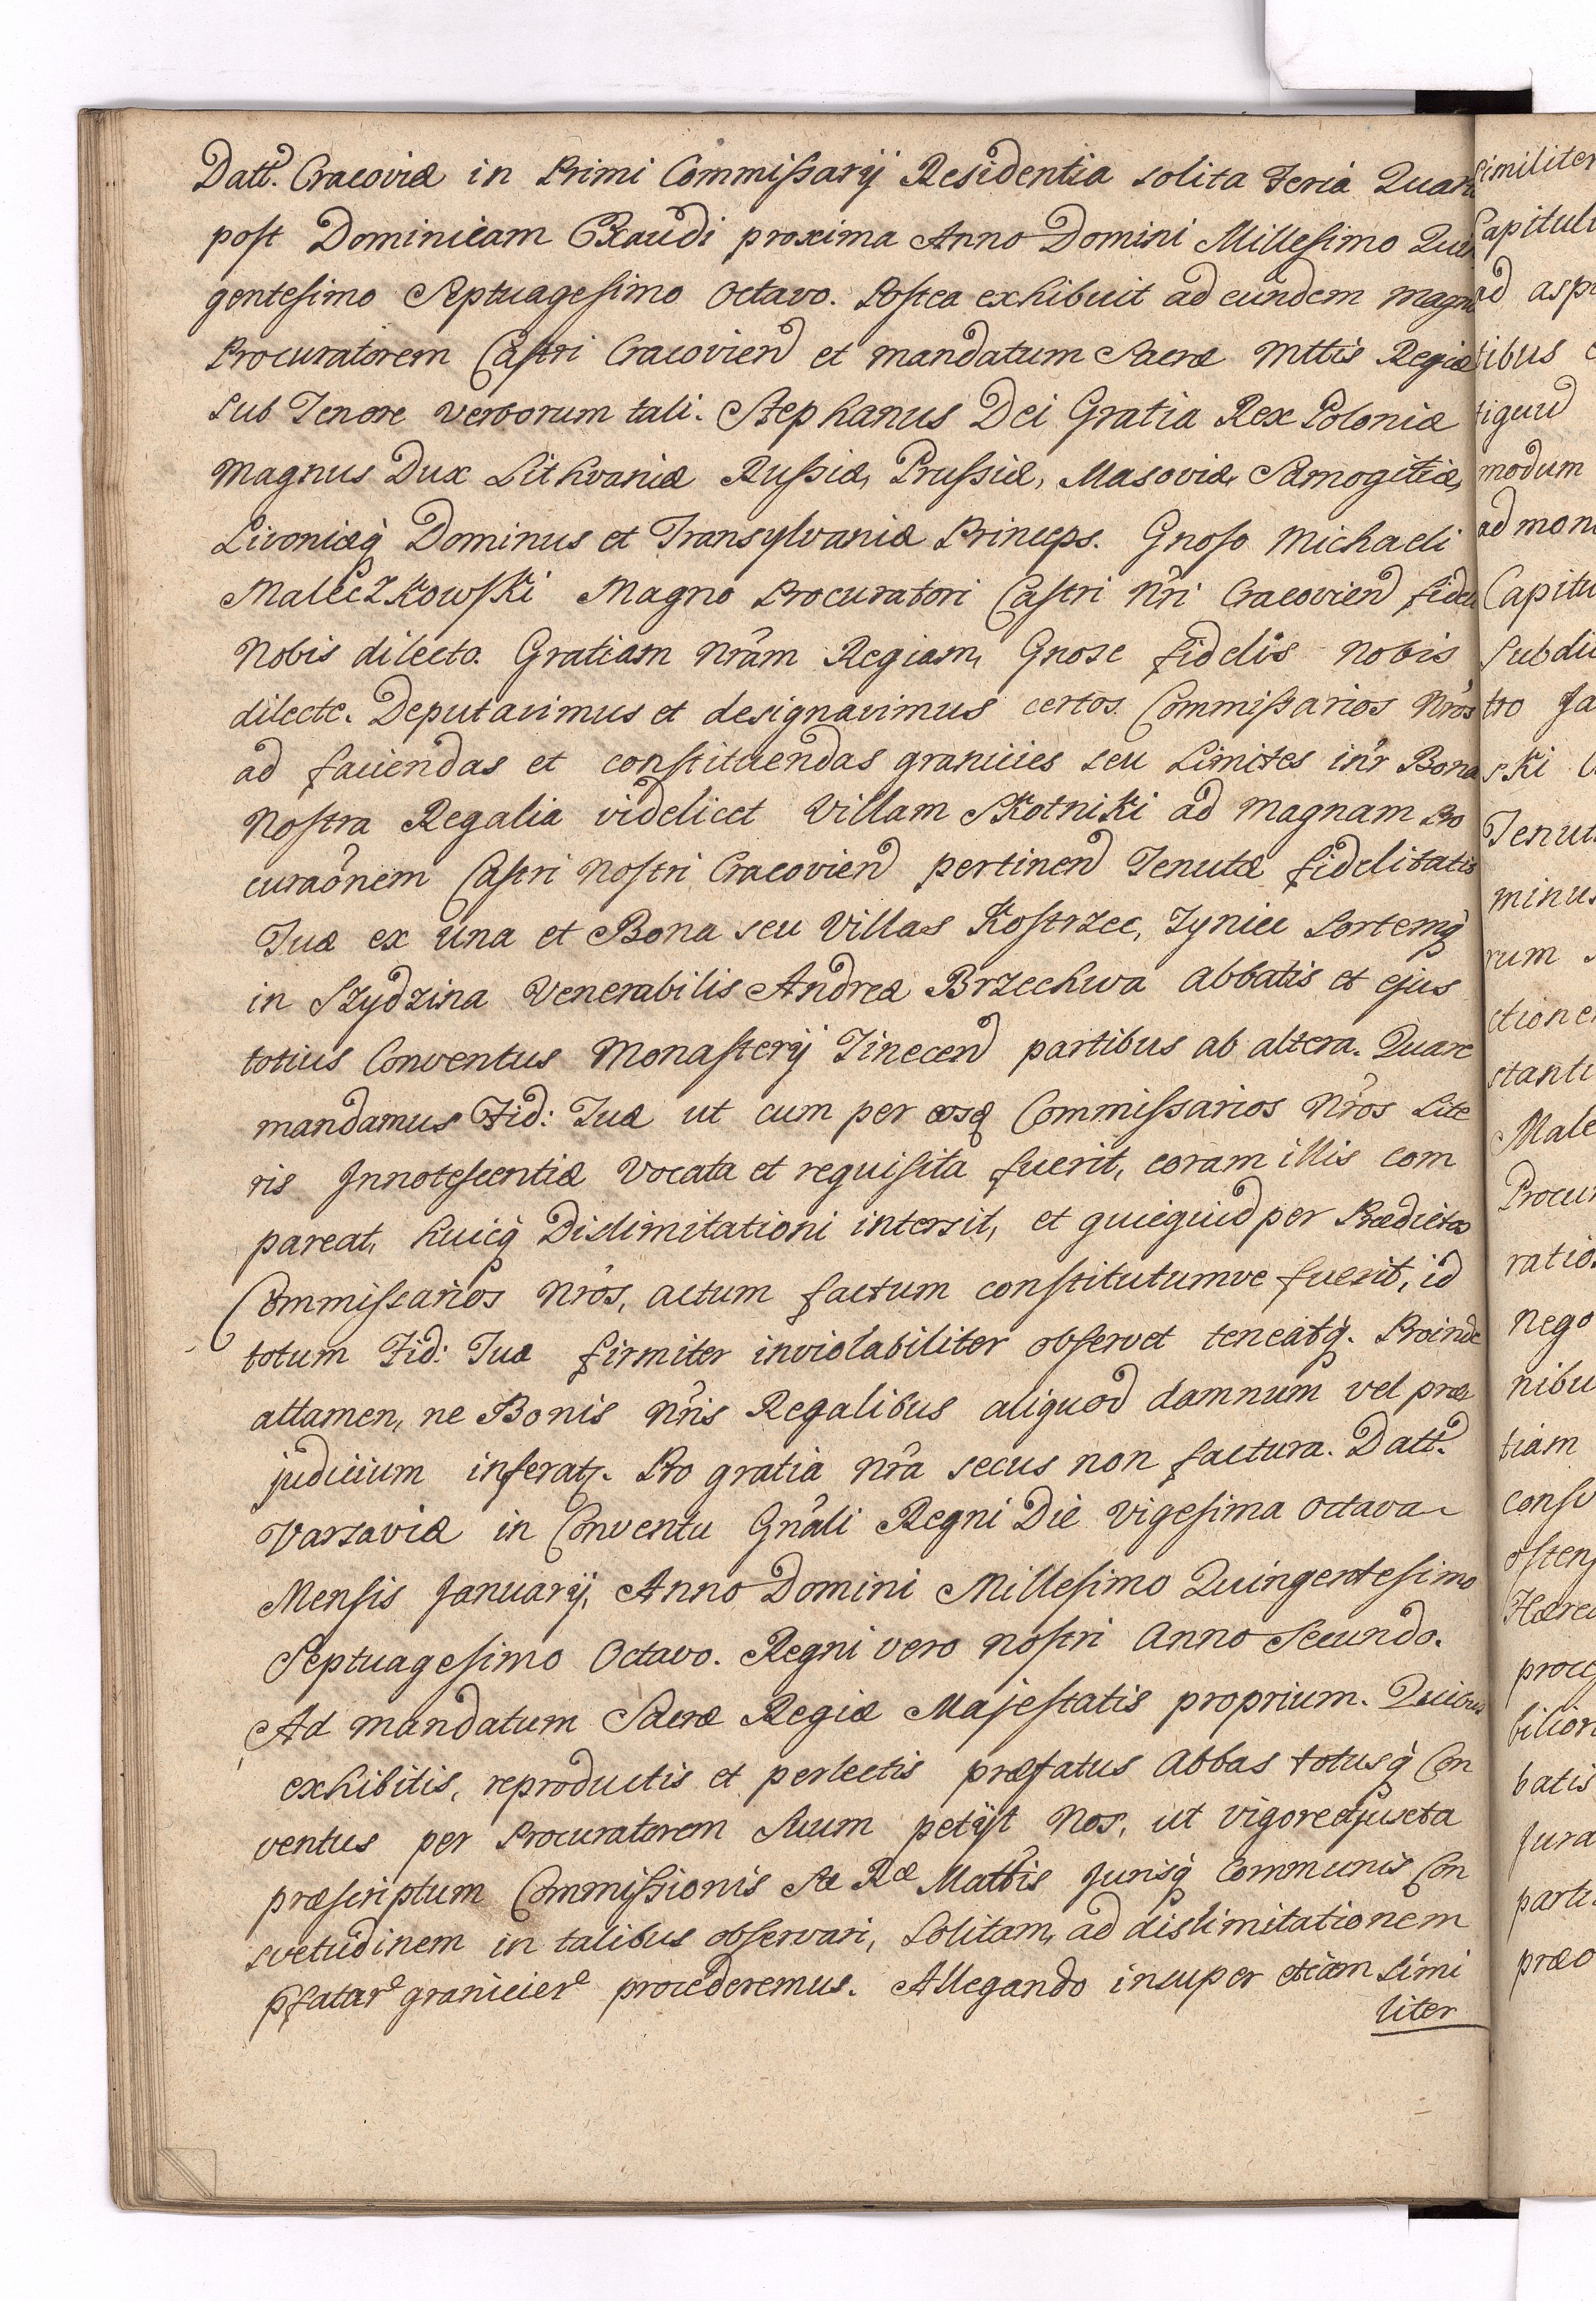 Datt. Cracoviæ in Primi Commissarij Residentia solita Feria Quart
post Dominicam Exaudi proxima Anno Domini Millesimo Quin
gentesimo Septuagesimo Octavo. Postea exhibuit ad eundem Magn
Procuratorem Castri Cracovien et mandatum Sacræ Mttis Regiæ
sub Tenore verborum tali. Stephanus Dei Gratia Rex Poloniæ
Magnus Dux Lithvaniæ Russiæ, Prussiæ, Masoviæ, Samogitiæ,
Livoniæq Dominus et Transylvaniæ Princeps. Gnoso Michaeli
Maleczkowski Magno Procuratori Castri Nri Cracovien fideli
Nobis dilecto. Gratiam Nram Regiam, Gnose fidelis nobis
dilecte. Deputavimus et designavimus certos Commissarios Nros
ad faciendas et constituendas granicies seu Limites inr Bona
Nostra Regalia videlicet Villam Skotniki ad Magnam Pro
curaonem Castri Nostri Cracovien pertinen Tenutæ fidelitatis
Tuæ ex una et Bona seu Villas Kostrzec, Tyniec Sortemq
in Szydzina Venerabilis Andreæ Brzechwa Abbatis et ejus
totius Conventus Monasterij Tinecen partibus ab altera. Quare
mandamus Fid: Tuæ ut cum per eosq Commissarios Nros Lite
ris Innotescentiæ Vocata et requisita fuerit, coram illis com
pareat, huicq Dislimitationi intersit, et quicquid per Prædictos
Commissarios Nros, actum factum constitutumve fuerit, id
totum Fid: Tua firmiter inviolabiliter observet teneatq. Proinde
attamen, ne Bonis Nris Regalibus aliquod damnum vel præ
judicium inferatr. Pro gratia Nra secus non factura. Datt.
Varsaviæ in Conventu Gnali Regni Die Vigesima Octava
Mensis Januarij, Anno Domini Millesimo Quingentesimo
Septuagesimo Octavo. Regni vero Nostri Anno Secundo.
Ad mandatum Sacræ Regiæ Majestatis proprium. Quibus
exhibitis, reproductis et perlectis præfatus Abbas totusq Con
ventus per Procuratorem Suum petijt Nos, ut vigore et juxta
præscriptum Commissionis Sæ Ræ Mattis Jurisq Communis Con
svetudinem in talibus observari, Solitam, ad dislimitationem
pfatar granicier procederemus. Allegando insuper etiam simi
liter